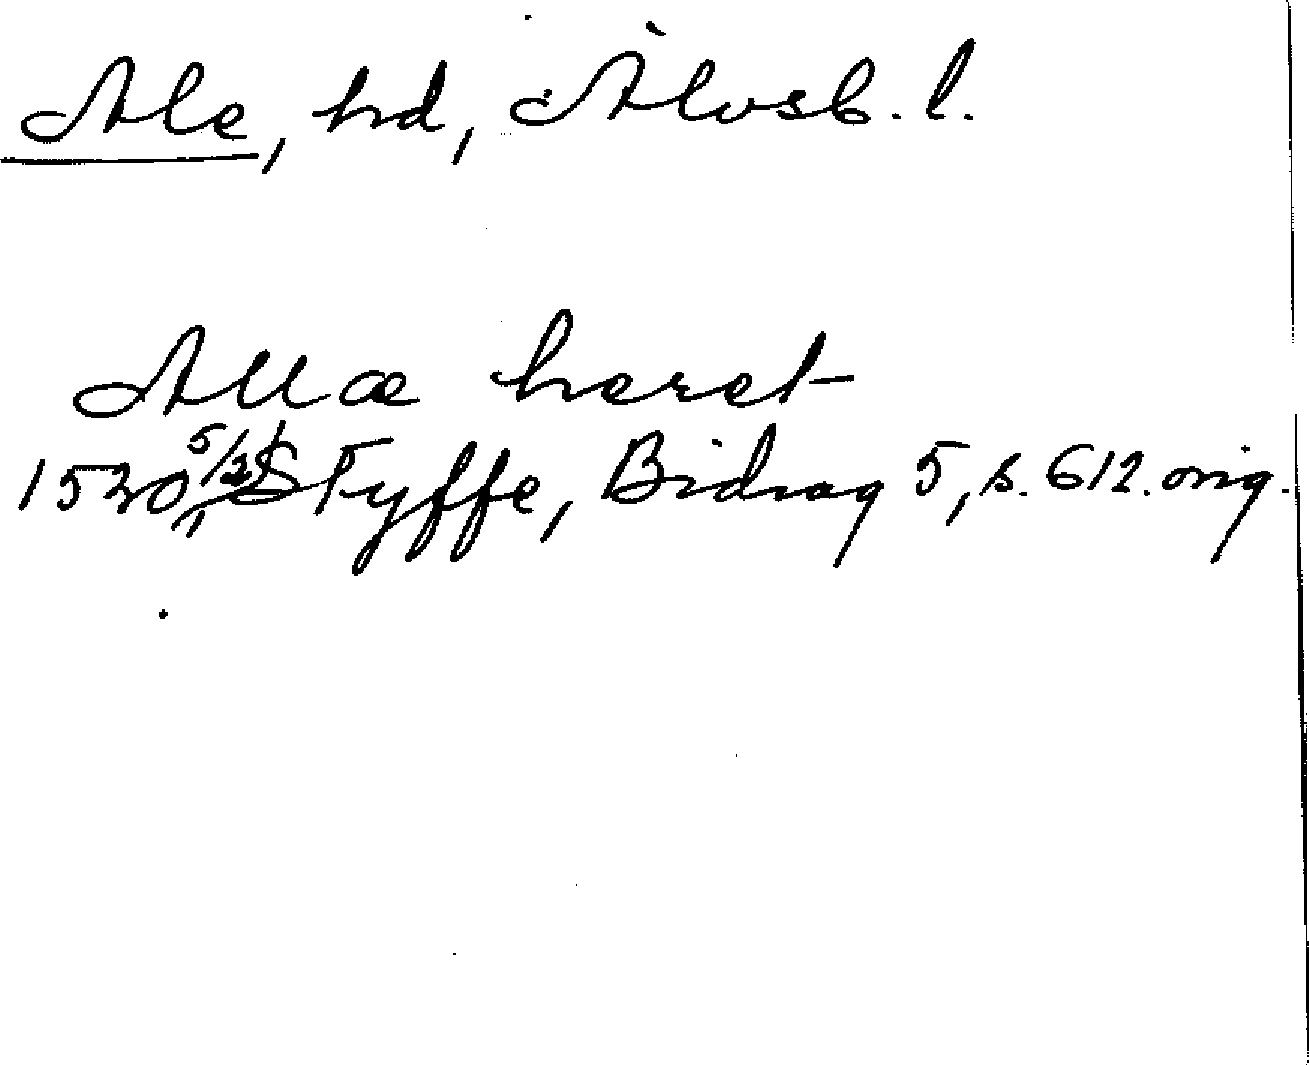 Ale, hd, Älvsb. l.
Allæ heret
1520 5/2, Styffe, Bidrag 5, s. 612. orig.